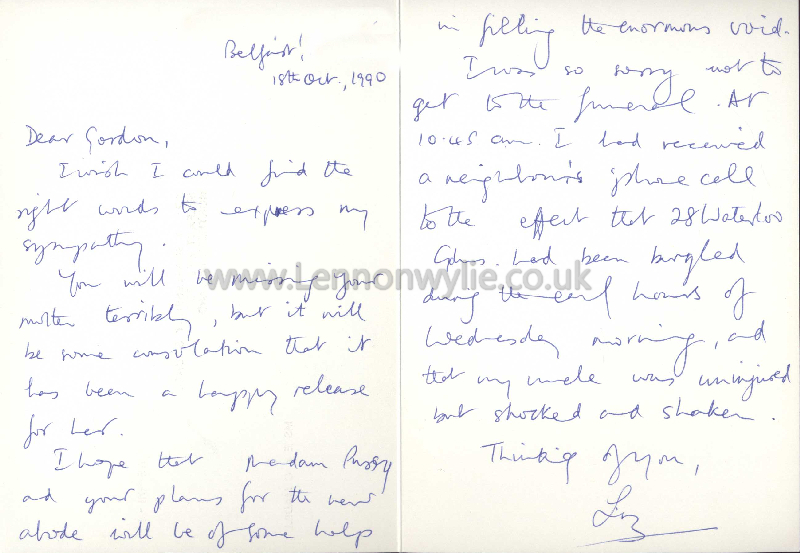 Belfast!
18th Oct., 1990
Dear Gordon,
I wish I could find the
right words to express my
sympathy.
You will be missing your
mother terribly, but it will
be some consolation that it
has been a happy release
for her.
I hope that Madam Pussy
and your plans for the new
abode will be of some help
in filling the enormous void.
I was so sorry not to
get to the funeral. At
10.45 am. I had received
a neighbour's 'phone call
to the effect that 28 Waterloo
Gdns. had been burgled
during the early hours of
Wednesday morning, and
that my uncle was uninjured
but shocked and shaken.
Thinking of you,
Liz
www.Lennonwylie.co.uk